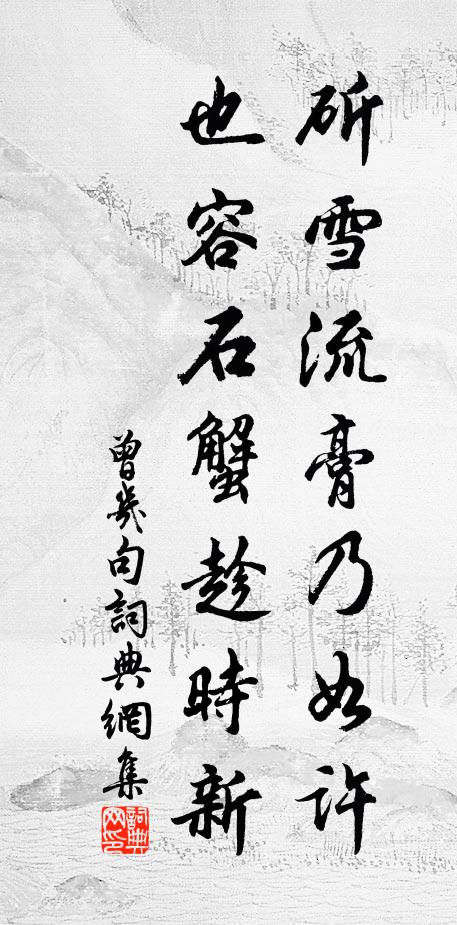 斫雪流膏乃如許
也容石蟹趁時新
曾幾句詞典網集
詞典网印